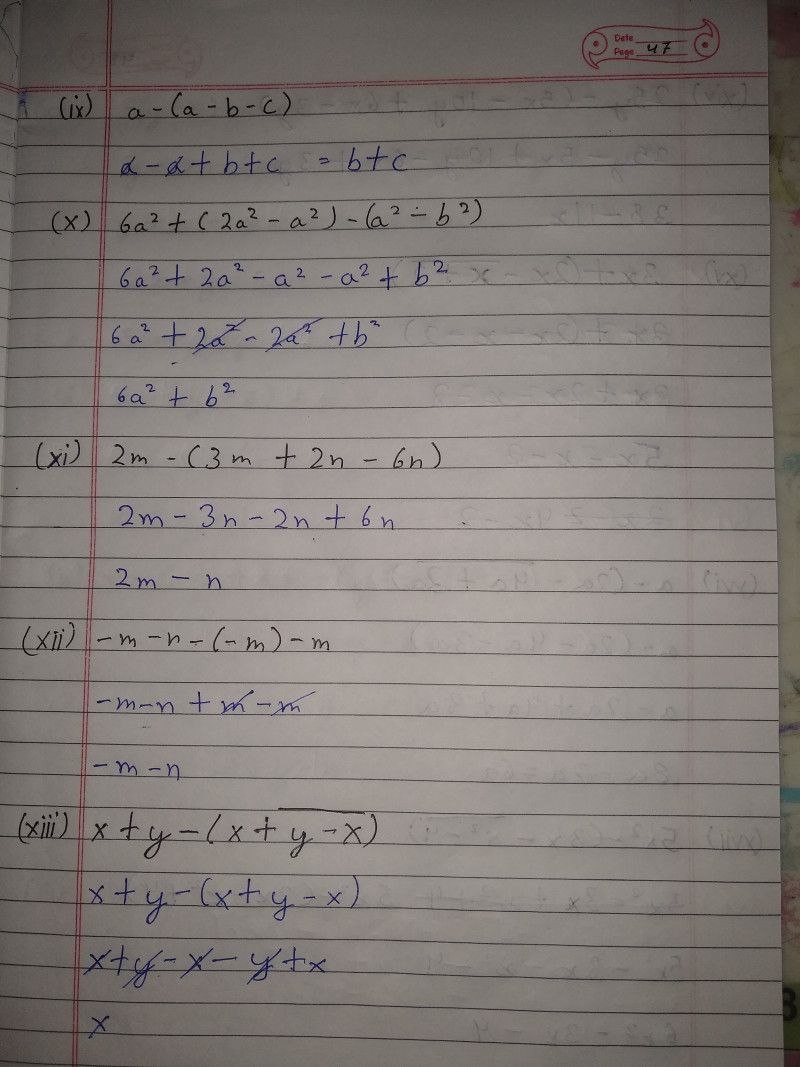 Date
Page 47
(ix) a-(a-b-c)
a-a+b+c = b+c
(x) 6a² + (2a² - a²) - (a² - b²)
6a² + 2a² - a² - a² + b²
6a² + 2a² - 2a² + b²
6a² + b²
(xi) 2m - (3m + 2n - 6n)
2m - 3n - 2n + 6n
2m - n
(xii) -m-n-(-m)-m
-m-n+m-m
-m-n
(xiii) x+y-(x+y-x)
x+y-(x+y-x)
x+y-x-y+x
x